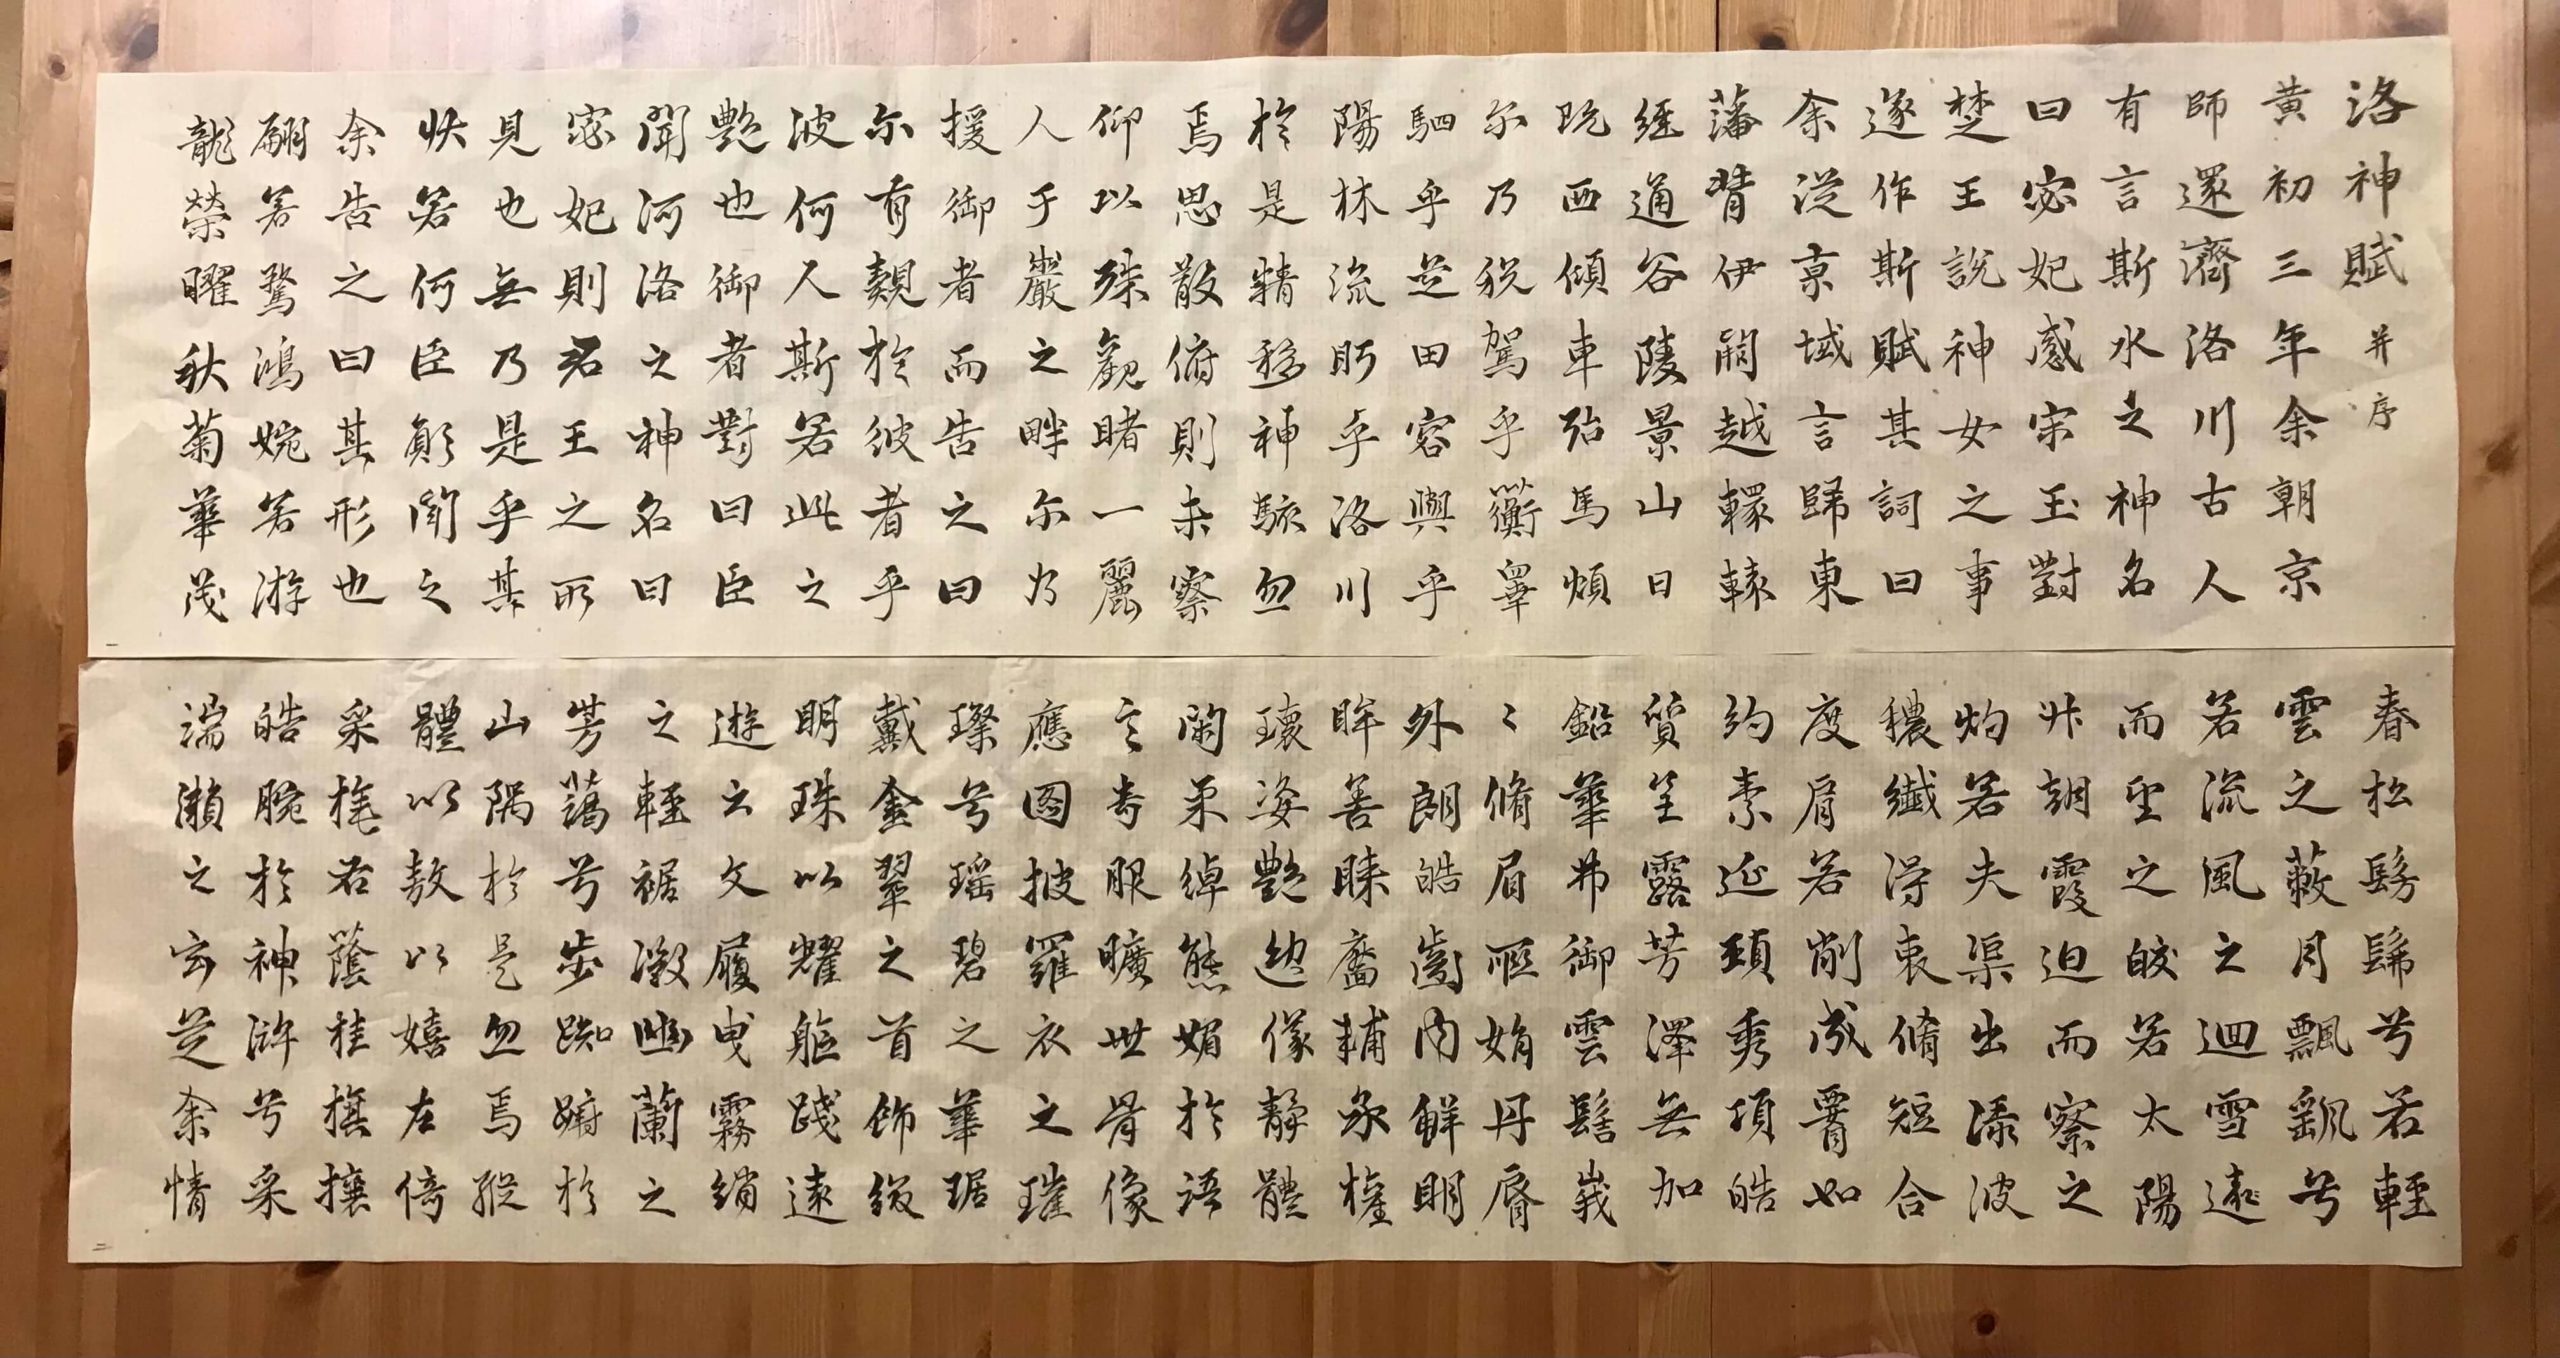 洛神賦 并序
黄初三年余朝京
師還濟洛川古人
有言斯水之神名
曰宓妃感宋玉對
楚王說神女之事
遂作斯賦其詞曰
余從京域言歸東
藩背伊闕越轘轅
經通谷陵景山日
既西傾車殆馬煩
尔乃税駕乎蘅皋
駟乎芝田容與乎
陽林流眄乎洛川
於是精移神駭忽
焉思散俯則未察
仰以殊觀睹一麗
人于巖之畔尔乃
援御者而告之曰
尔有覿於彼者乎
波何人斯若此之
艷也御者對曰臣
聞河洛之神名曰
宓妃則君王之所
見也無乃是乎其
狀若何臣願聞之
余告之曰其形也
翩若驚鴻婉若游
龍榮曜秋菊華茂
一
春松髣髴兮若輕
雲之蔽月飄颻兮
若流風之迴雪遠
而望之皎若太陽
升朝霞迫而察之
灼若夫渠出淥波
穠纖得衷脩短合
度肩若削成腰如
約素延頸秀項皓
質呈露芳澤無加
鉛華弗御雲髻峩
〻脩眉聯娟丹脣
外朗皓齒内鮮明
眸善睞靨輔承權
瓌姿艷逸儀靜體
閑柔綽態媚於語
言奇服曠世骨像
應圖披羅衣之璀
璨兮瑤碧之華琚
戴金翠之首飾綴
明珠以耀軀踐遠
遊之文履曳霧綃
之輕裾微幽蘭之
芳藹兮步踟躕於
山隅於是忽焉縱
體以敖以嬉左倚
采旄右蔭桂旗攘
皓腕於神滸兮采
湍瀨之玄芝余情
二